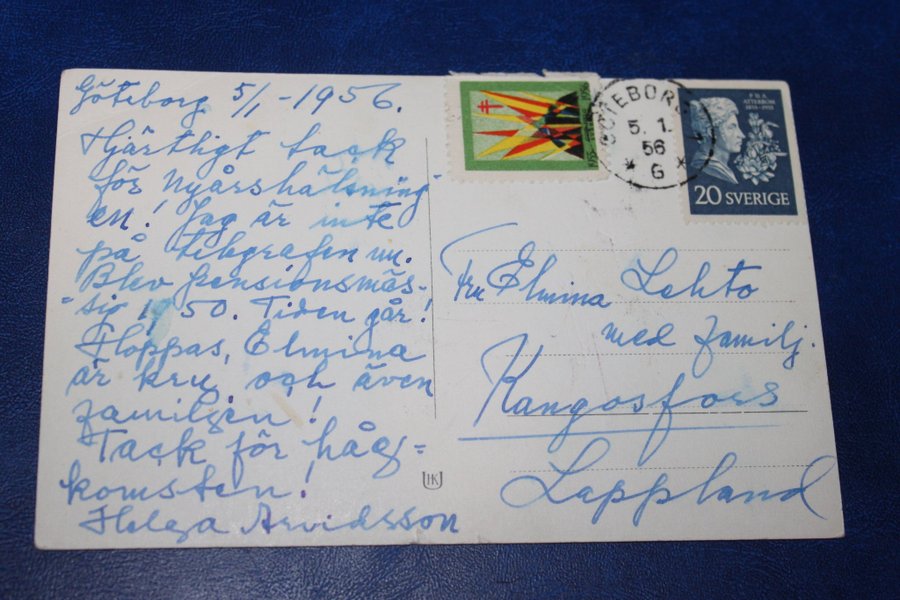 Göteborg 5/1 - 1956.
Hjärtligt tack
för nyårshälsning-
en! Jag är inte
på telegrafen nu.
Blev pensionsmäs-
sig 1950. Tiden går!
Hoppas, Elmina
är kry och även
familjen!
Tack för håg-
komsten!
Helga Arvidsson
GÖTEBORG
5. 1.
56
* G *
P D A
ATTERBOM
1855-1955
20 SVERIGE
Fru Elmina Lehto
med familj.
Kangosfors
Lappland